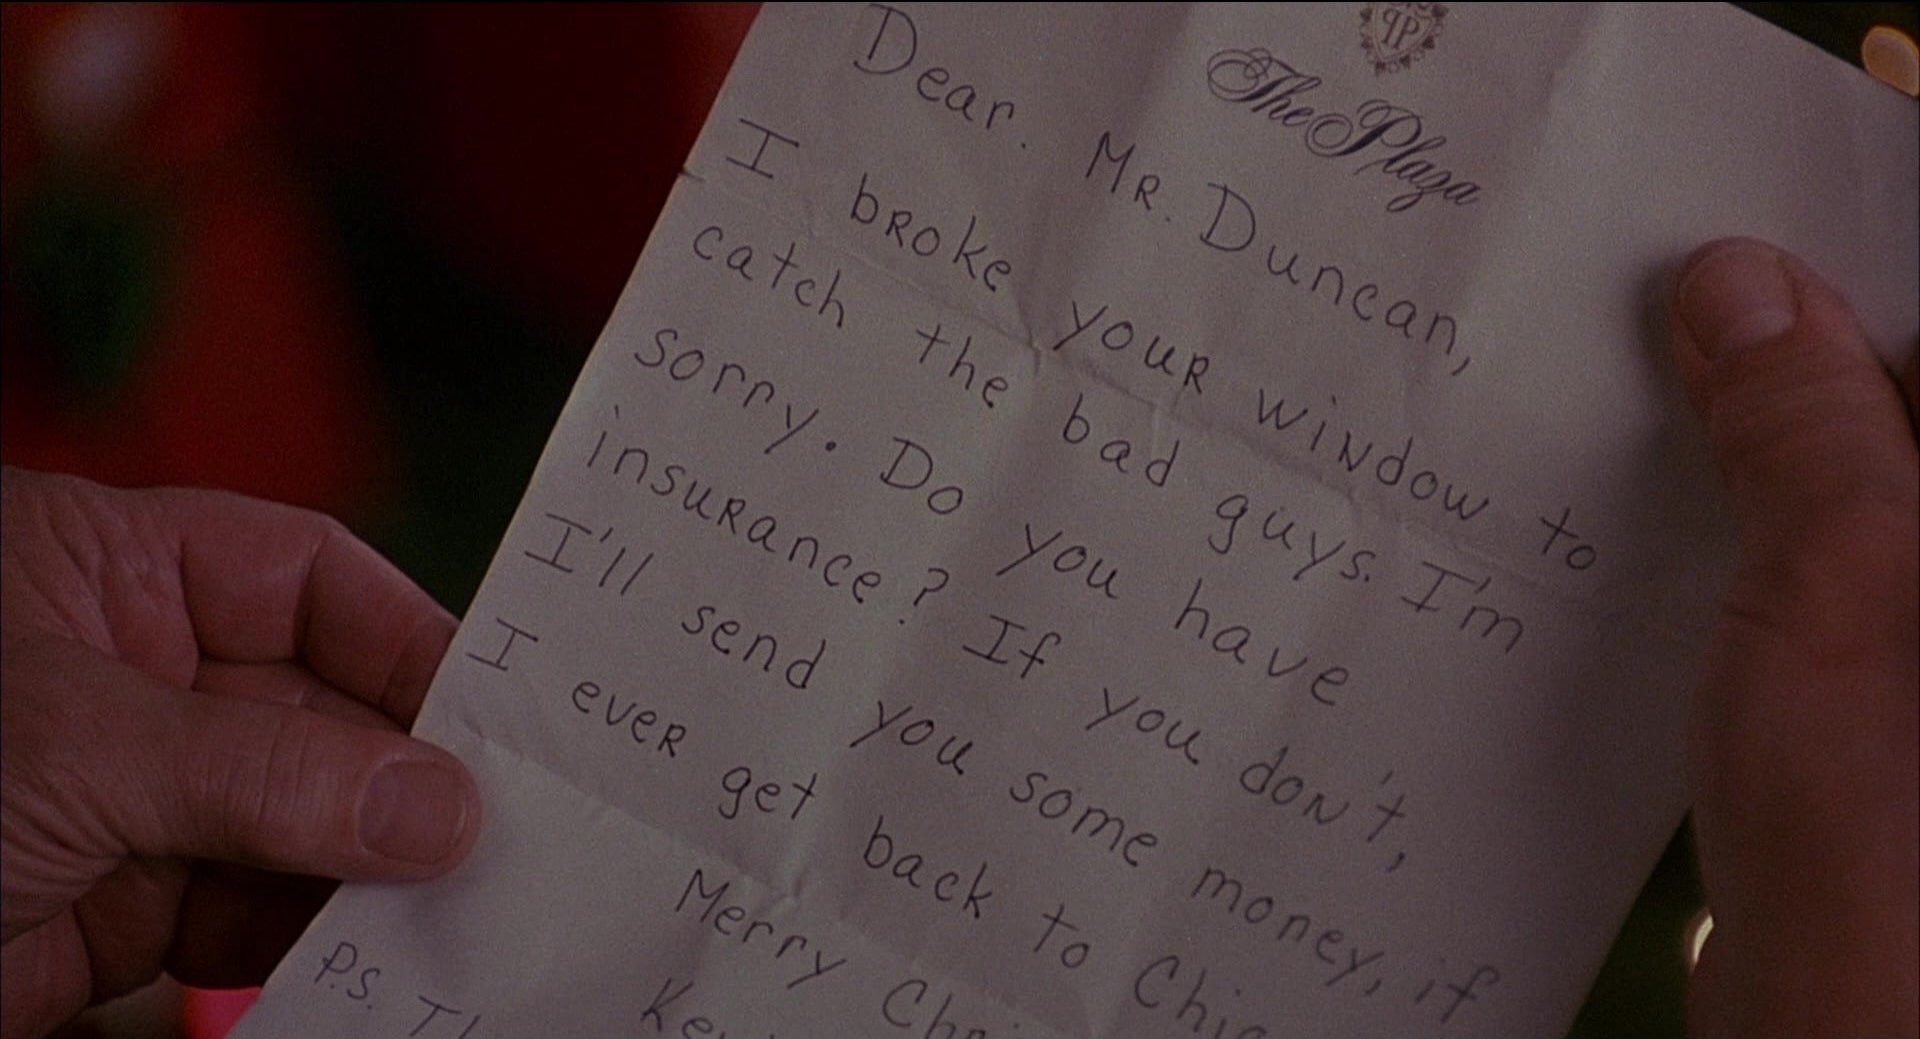 The Plaza
Dear. Mr. Duncan,
I broke your window to
catch the bad guys. I'm
sorry. Do you have
insurance? If you don't,
I'll send you some money, if
I ever get back to
Merry
P.S.